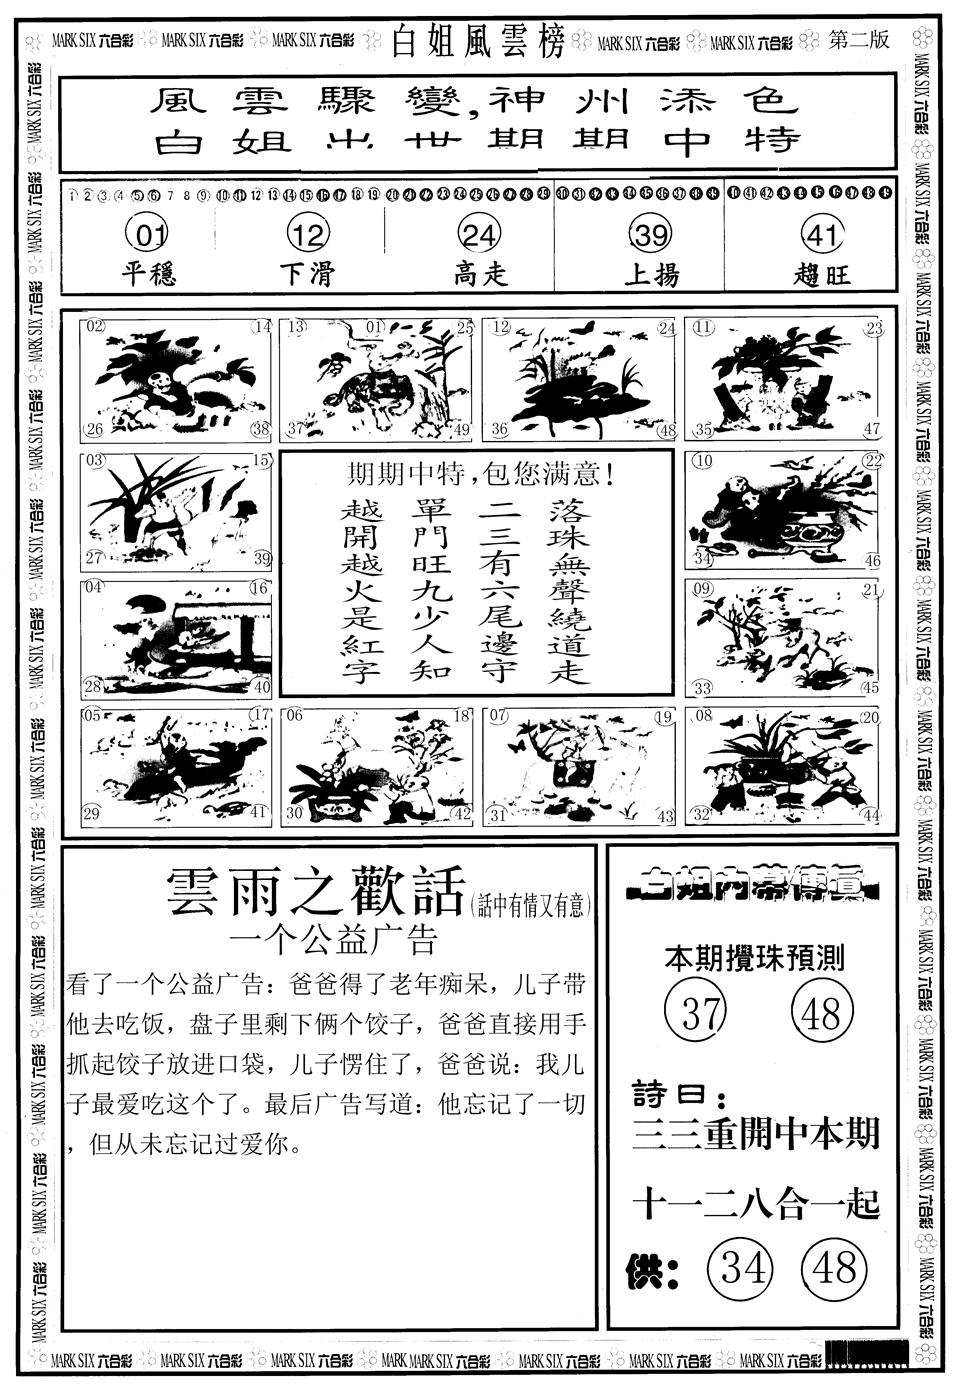 MARK SIX 六合彩 MARK SIX 六合彩 MARK SIX 六合彩 白姐風雲榜 MARK SIX 六合彩 MARK SIX 六合彩 第二版
風雲驟變,神州添色
白姐出世期期中特
1 2 3 4 5 6 7 8 9 10 11 12 13 14 15 16 17 18 19 20 21 22 23 24 25 26 27 28 29 30 31 32 33 34 35 36 37 38 39 40 41 42 43 44 45 46 47 48 49
01 12 24 39 41
平穩 下滑 高走 上揚 趨旺
02 14 13 01 25 12 24 11 23
26 38 37 49 36 48 35 47
03 15
27 39
04 16
28 40
期期中特,包您满意!
落珠無聲繞道走
二三有六尾邊守
單門旺九少人知
越開越火是紅字
10 22
34 46
09 21
33 45
05 17 06 18 07 19 08 20
29 41 30 42 31 43 32 44
雲雨之歡話(話中有情又有意)
一个公益广告
看了一个公益广告:爸爸得了老年痴呆,儿子带
他去吃饭,盘子里剩下俩个饺子,爸爸直接用手
抓起饺子放进口袋,儿子愣住了,爸爸说:我儿
子最爱吃这个了。最后广告写道:他忘记了一切
,但从未忘记过爱你。
白姐内幕傳真
本期攪珠預測
37 48
詩曰:
三三重開中本期
十一二八合一起
供: 34 48
MARK SIX 六合彩 MARK SIX 六合彩 MARK SIX 六合彩 MARK MARK SIX 六合彩 MARK SIX 六合彩 MARK SIX 六合彩 MARK SIX 六合彩